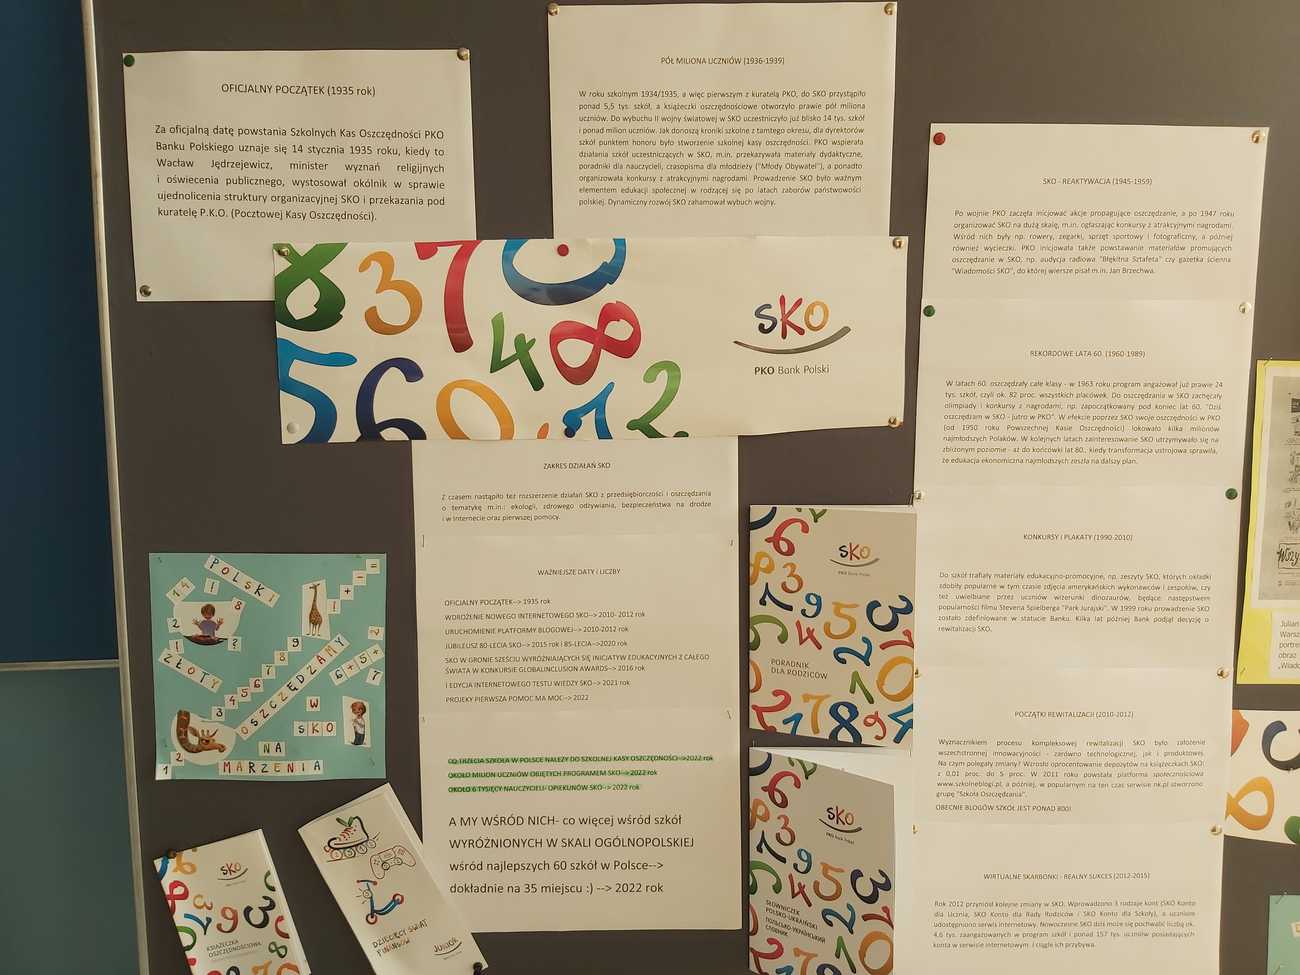 OFICJALNY POCZĄTEK (1935 rok)
Za oficjalną datę powstania Szkolnych Kas Oszczędności PKO
Banku Polskiego uznaje się 14 stycznia 1935 roku, kiedy to
Wacław Jędrzejewicz, minister wyznań religijnych
i oświecenia publicznego, wystosował okólnik w sprawie
ujednolicenia struktury organizacyjnej SKO i przekazania pod
kuratelę P.K.O. (Pocztowej Kasy Oszczędności).
PÓŁ MILIONA UCZNIÓW (1936-1939)
W roku szkolnym 1934/1935, a więc pierwszym z kuratelą PKO, do SKO przystąpiło
ponad 5,5 tys. szkół, a książeczki oszczędnościowe otworzyło prawie pół miliona
uczniów. Do wybuchu II wojny światowej w SKO uczestniczyło już blisko 14 tys. szkół
i ponad milion uczniów. Jak donoszą kroniki szkolne z tamtego okresu, dla dyrektorów
szkół punktem honoru było stworzenie szkolnej kasy oszczędności. PKO wspierała
działania szkół uczestniczących w SKO, m.in. przekazywała materiały dydaktyczne,
poradniki dla nauczycieli, czasopisma dla młodzieży ("Młody Obywatel"), a ponadto
organizowała konkursy z atrakcyjnymi nagrodami. Prowadzenie SKO było ważnym
elementem edukacji społecznej w rodzącej się po latach zaborów państwowości
polskiej. Dynamiczny rozwój SKO zahamował wybuch wojny.
8 3 7 0
4 8
5 6 0 1 2
SKO
PKO Bank Polski
ZAKRES DZIAŁAŃ SKO
Z czasem nastąpiło też rozszerzenie działań SKO z przedsiębiorczości i oszczędzania
o tematykę m.in.: ekologii, zdrowego odżywiania, bezpieczeństwa na drodze
i w Internecie oraz pierwszej pomocy.
WAŻNIEJSZE DATY i LICZBY
OFICJALNY POCZĄTEK--> 1935 rok
WDROŻENIE NOWEGO INTERNETOWEGO SKO--> 2010- 2012 rok
URUCHOMIENIE PLATFORMY BLOGOWEJ--> 2010-2012 rok
JUBILEUSZ 80-LECIA SKO--> 2015 rok i 85-LECIA-->2020 rok
SKO W GRONIE SZEŚCIU WYRÓŻNIAJĄCYCH SIĘ INICJATYW EDUKACYJNYCH Z CAŁEGO
ŚWIATA W KONKURSIE GLOBALINCLUSION AWARDS--> 2016 rok
I EDYCJA INTERNETOWEGO TESTU WIEDZY SKO--> 2021 rok
PROJEKY PIERWSZA POMOC MA MOC--> 2022
CO TRZECIA SZKOŁA W POLSCE NALEŻY DO SZKOLNEJ KASY OSZCZĘDNOŚCI-->2022 rok
OKOŁO MILION UCZNIÓW OBJĘTYCH PROGRAMEM SKO--> 2022 rok
OKOŁO 6 TYSIĘCY NAUCZYCIELI- OPIEKUNÓW SKO--> 2022 rok
A MY WŚRÓD NICH- co więcej wśród szkół
WYRÓŻNIONYCH W SKALI OGÓLNOPOLSKIEJ
wśród najlepszych 60 szkół w Polsce-->
dokładnie na 35 miejscu :) --> 2022 rok
SKO - REAKTYWACJA (1945-1959)
Po wojnie PKO zaczęła inicjować akcje propagujące oszczędzanie, a po 1947 roku
organizować SKO na dużą skalę, m.in. ogłaszając konkursy z atrakcyjnymi nagrodami.
Wśród nich były np. rowery, zegarki, sprzęt sportowy i fotograficzny, a później
również wycieczki. PKO inicjowała także powstawanie materiałów promujących
oszczędzanie w SKO, np. audycja radiowa "Błękitna Sztafeta" czy gazetka ścienna
"Wiadomości SKO", do której wiersze pisał m.in. Jan Brzechwa.
REKORDOWE LATA 60. (1960-1989)
W latach 60. oszczędzały całe klasy - w 1963 roku program angażował już prawie 24
tys. szkół, czyli ok. 82 proc. wszystkich placówek. Do oszczędzania w SKO zachęcały
olimpiady i konkursy z nagrodami, np. zapoczątkowany pod koniec lat 60. "Dziś
oszczędzam w SKO - jutro w PKO". W efekcie poprzez SKO swoje oszczędności w PKO
(od 1950 roku Powszechnej Kasie Oszczędności) lokowało kilka milionów
najmłodszych Polaków. W kolejnych latach zainteresowanie SKO utrzymywało się na
zbliżonym poziomie - aż do końcówki lat 80., kiedy transformacja ustrojowa sprawiła,
że edukacja ekonomiczna najmłodszych zeszła na dalszy plan.
KONKURSY i PLAKATY (1990-2010)
Do szkół trafiały materiały edukacyjno-promocyjne, np. zeszyty SKO, których okładki
zdobiły popularne w tym czasie zdjęcia amerykańskich wykonawców i zespołów, czy
też uwielbiane przez uczniów wizerunki dinozaurów, będące następstwem
popularności filmu Stevena Spielberga "Park Jurajski". W 1999 roku prowadzenie SKO
zostało zdefiniowane w statucie Banku. Kilka lat później Bank podjął decyzję o
rewitalizacji SKO.
POCZĄTKI REWITALIZACJI (2010-2012)
Wyznacznikiem procesu kompleksowej rewitalizacji SKO było założenie
wszechstronnej innowacyjności - zarówno technologicznej, jak i produktowej.
Na czym polegały zmiany? Wzrosło oprocentowanie depozytów na książeczkach SKO:
z 0,01 proc. do 5 proc. W 2011 roku powstała platforma społecznościowa
www.szkolneblogi.pl, a później, w popularnym na ten czas serwisie nk.pl stworzono
grupę "Szkoła Oszczędzania".
OBECNIE BLOGÓW SZKÓŁ JEST PONAD 800!
WIRTUALNE SKARBONKI - REALNY SUKCES (2012-2015)
Rok 2012 przyniósł kolejne zmiany w SKO. Wprowadzono 3 rodzaje kont (SKO Konto
dla Ucznia, SKO Konto dla Rady Rodziców i SKO Konto dla Szkoły), a uczniom
udostępniono serwis internetowy. Nowoczesne SKO dziś może się pochwalić liczbą ok.
4,6 tys. zaangażowanych w program szkół i ponad 157 tys. uczniów posiadających
konta w serwisie internetowym. I ciągle ich przybywa.
POLSKI
ZŁOTY
3 4 5 6 7 8 9
OSZCZĘDZAMY
6+5+7
W
SKO
NA
MARZENIA
1 2
SKO
PKO Bank Polski
PORADNIK
DLA RODZICÓW
SKO
PKO Bank Polski
SŁOWNICZEK
POLSKO-UKRAIŃSKI
ПОЛЬСЬКО-УКРАЇНСЬКИЙ
СЛОВНИК
SKO
KSIĄŻECZKA
OSZCZĘDNOŚCIOWA
DZIECIĘCY ŚWIAT
FINANSÓW
JUNIOR
Julian
Warsz
portre
obraz
„Wiado